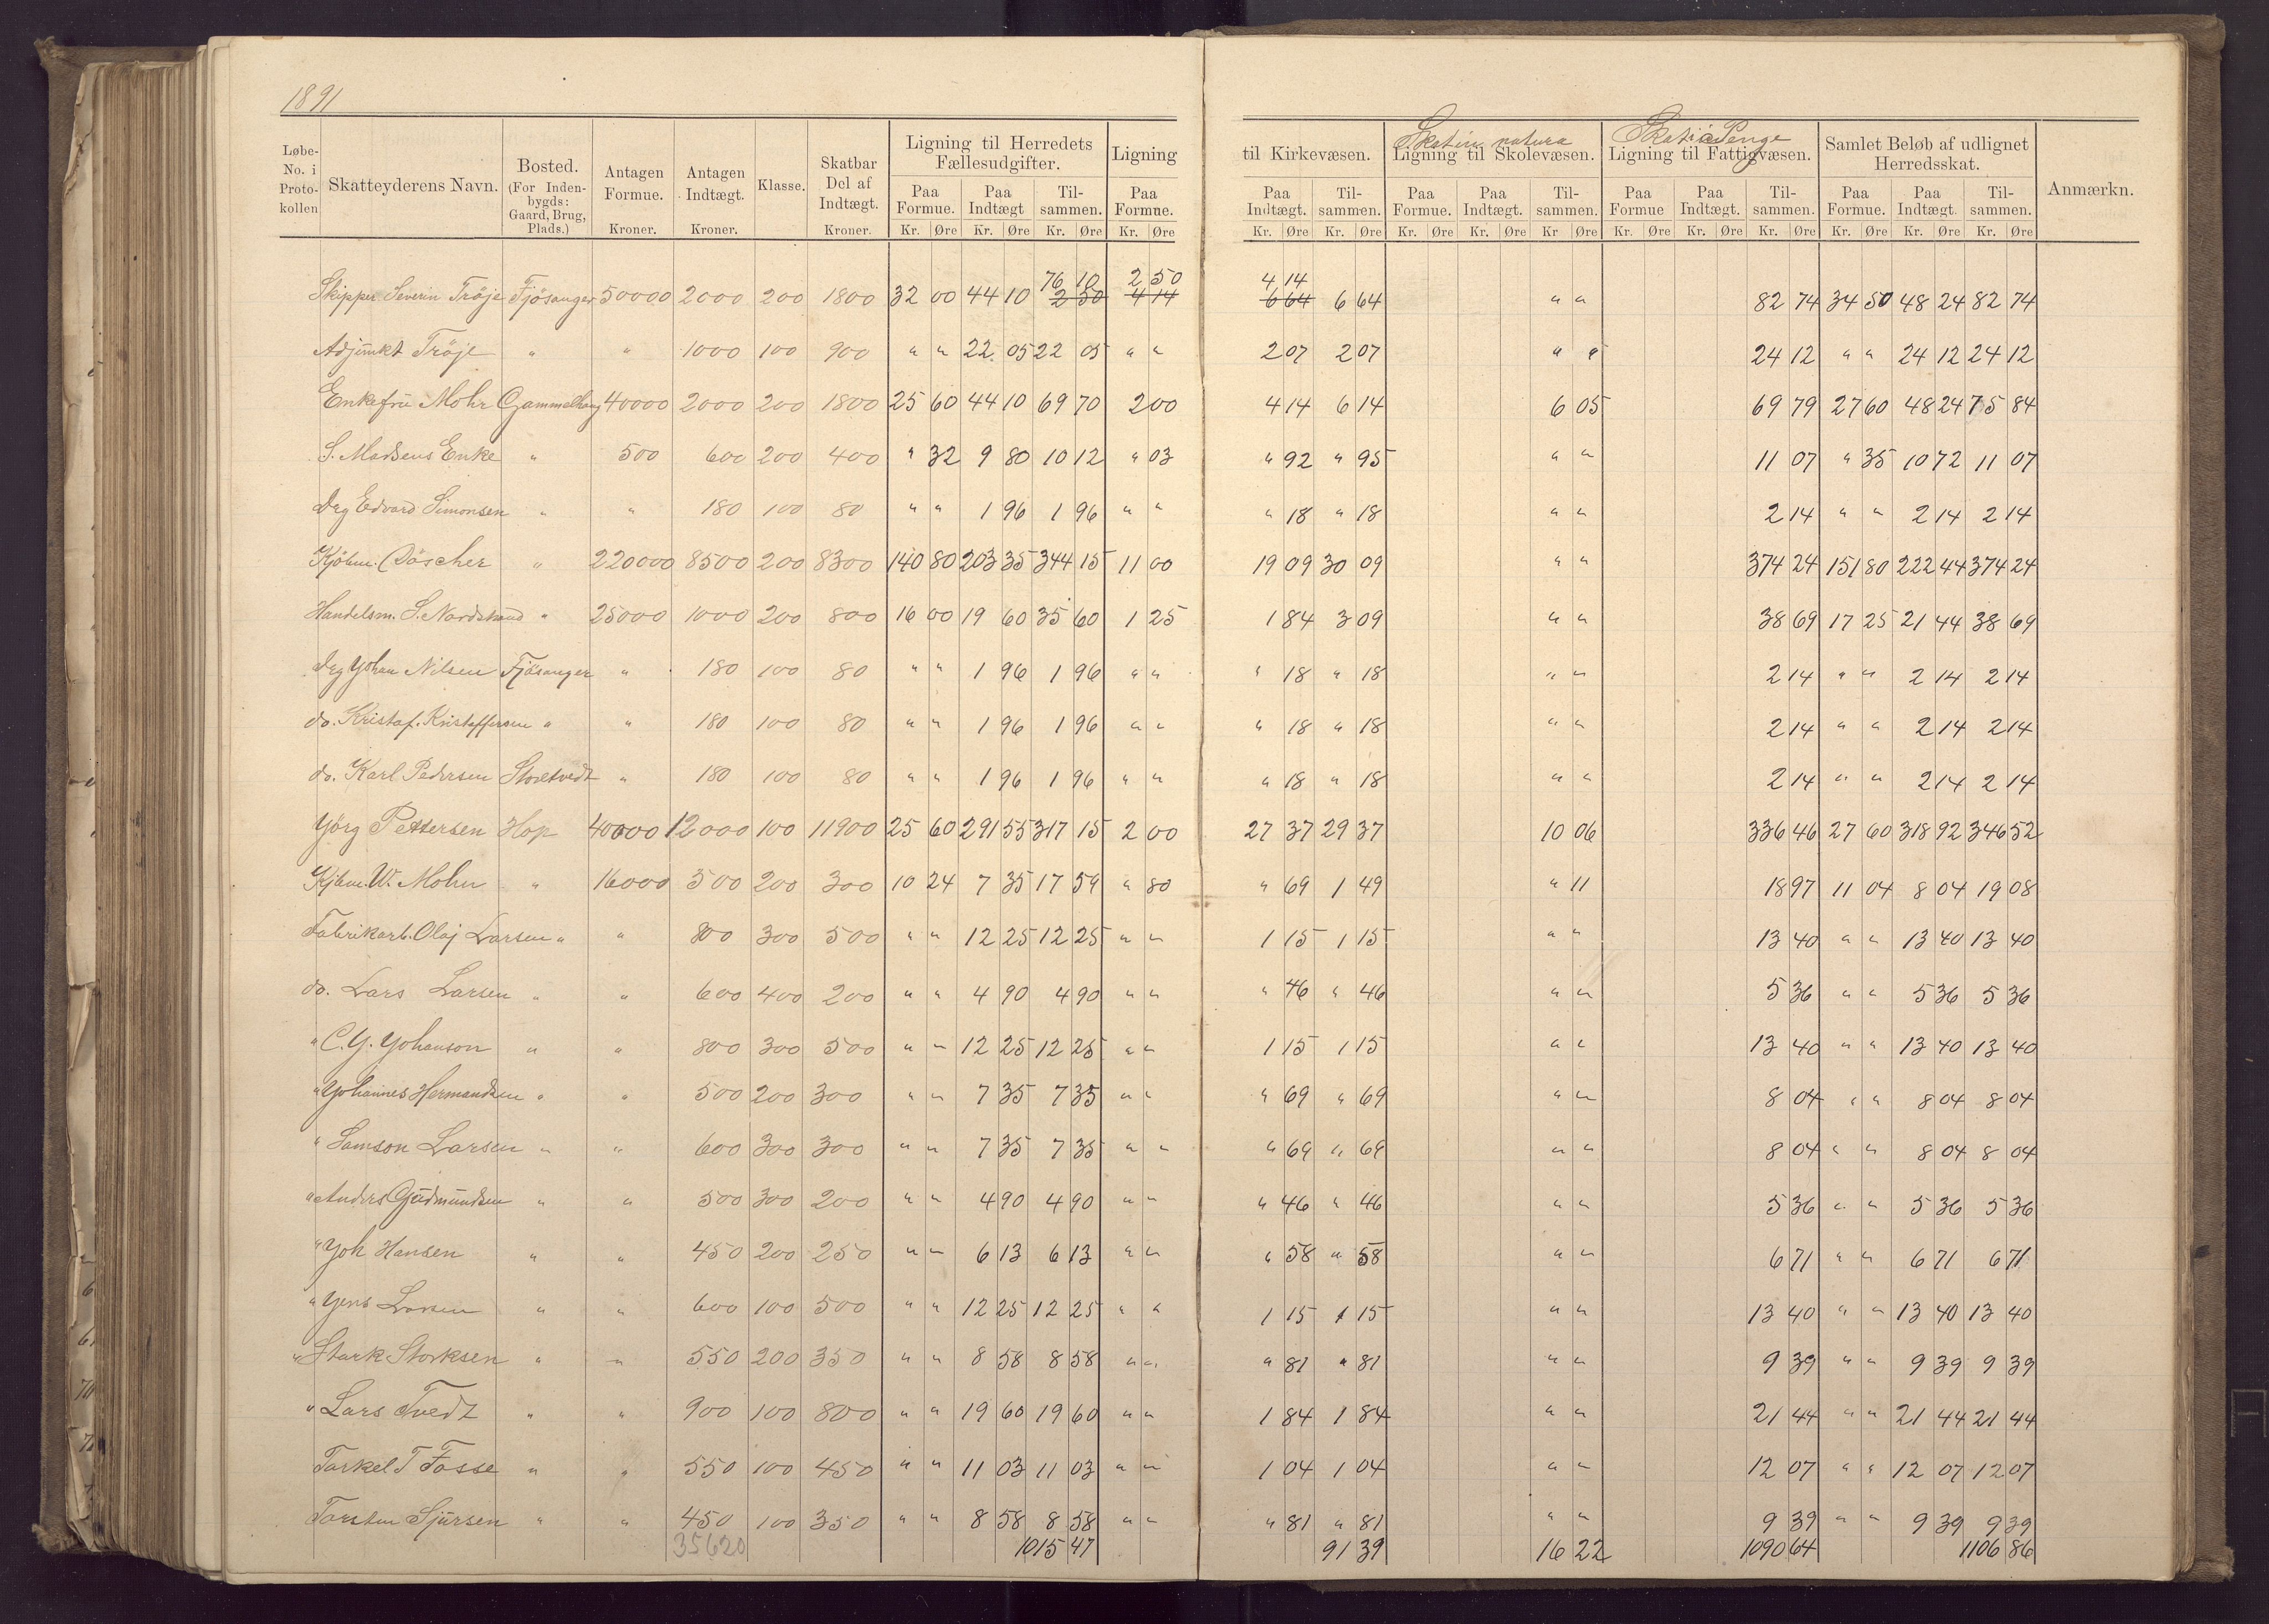 1891
Løbe-No. i Proto-kollen | Skatteyderens Navn. | Bosted. (For Inden-bygds: Gaard, Brug, Plads.) | Antagen Formue. Kroner. | Antagen Indtægt. Kroner. | Klasse. | Skatbar Del af Indtægt. Kroner. | Ligning til Herredets Fællesudgifter. Paa Formue. Kr. Øre Paa Indtægt Kr. Øre Til-sammen. Kr. Øre | Ligning Paa Formue. Kr. Øre | til Kirkevæsen. Paa Indtægt. Kr. Øre Til-sammen. Kr. Øre | Skat in natura Ligning til Skolevæsen. Paa Formue. Kr. Øre Paa Indtægt. Kr. Øre Til-sammen. Kr Øre | Skat i Penge Ligning til Fattigvæsen. Paa Formue Kr. Øre Paa Indtægt. Kr. Øre Til-sammen. Kr. Øre | Samlet Beløb af udlignet Herredsskat. Paa Formue. Kr. Øre Paa Indtægt. Kr. Øre Til-sammen. Kr. Øre | Anmærkn.
Skipper Severin Tröje Fjösanger 50000 2000 200 1800 32 00 44 10 76 10 2 50 2 50 4 14 4 14 6 64 6 64 " " 82 74 34 50 48 24 82 74
Adjunkt Tröje " " 1000 100 900 " " 22 05 22 05 " " 2 07 2 07 " " 24 12 " " 24 12 24 12
Enkefru Mohr Gammelhaug 40000 2000 200 1800 25 60 44 10 69 70 2 00 4 14 6 14 6 05 69 79 27 60 48 24 75 84
S. Madsens Enke " 500 600 200 400 " 32 9 80 10 12 " 03 " 92 " 95 " " 11 07 " 35 10 72 11 07
Drg Edvard Simonsen " " 180 100 80 " " 1 96 1 96 " " " 18 " 18 " " 2 14 " " 2 14 2 14
Kjöbm. Döscher " 220000 8500 200 8300 140 80 203 35 344 15 11 00 19 09 30 09 " " 374 24 151 80 222 44 374 24
Handelsm. S. Nordstrand " 25000 1000 200 800 16 00 19 60 35 60 1 25 1 84 3 09 " " 38 69 17 25 21 44 38 69
Drg Johan Nilsen Fjösanger " 180 100 80 " " 1 96 1 96 " " " 18 " 18 " " 2 14 " " 2 14 2 14
do. Kristof. Kristoffersen " " 180 100 80 " " 1 96 1 96 " " " 18 " 18 " " 2 14 " " 2 14 2 14
do. Karl Pedersen Storetvedt " 180 100 80 " " 1 96 1 96 " " " 18 " 18 " " 2 14 " " 2 14 2 14
Jörg Pettersen Hop 40000 12000 100 11900 25 60 291 55 317 15 2 00 27 37 29 37 10 06 336 46 27 60 318 92 346 52
Kjbm. W. Mohn " 16000 500 200 300 10 24 7 35 17 59 " 80 " 69 1 49 " 11 18 97 11 04 8 04 19 08
Fabrikarb. Olaj Larsen " " 800 300 500 " " 12 25 12 25 " " 1 15 1 15 " " 13 40 " " 13 40 13 40
do. Lars Larsen " " 600 400 200 " " 4 90 4 90 " " " 46 " 46 " " 5 36 " " 5 36 5 36
" C. J. Johanson " " 800 300 500 " " 12 25 12 25 " " 1 15 1 15 " " 13 40 " " 13 40 13 40
" Johannes Hermandsen " " 500 200 300 " " 7 35 7 35 " " " 69 " 69 " " 8 04 " " 8 04 8 04
" Samson Larsen " " 600 300 300 " " 7 35 7 35 " " " 69 " 69 " " 8 04 " " 8 04 8 04
" Anders Gudmundsen " " 500 300 200 " " 4 90 4 90 " " " 46 " 46 " " 5 36 " " 5 36 5 36
" Joh Hansen " " 450 200 250 " " 6 13 6 13 " " " 58 " 58 " " 6 71 " " 6 71 6 71
" Jens Larsen " " 600 100 500 " " 12 25 12 25 " " 1 15 1 15 " " 13 40 " " 13 40 13 40
" Stark Storksen " " 550 200 350 " " 8 58 8 58 " " " 81 " 81 " " 9 39 " " 9 39 9 39
" Lars Tvedt " " 900 100 800 " " 19 60 19 60 " " 1 84 1 84 " " 21 44 " " 21 44 21 44
Torkel T Fosse " " 550 100 450 " " 11 03 11 03 " " 1 04 1 04 " " 12 07 " " 12 07 12 07
Torsten Sjursen " " 450 100 350 " " 8 58 8 58 " " " 81 " 81 " " 9 39 " " 9 39 9 39
35620 1015 47 91 39 16 22 1090 64 1106 86